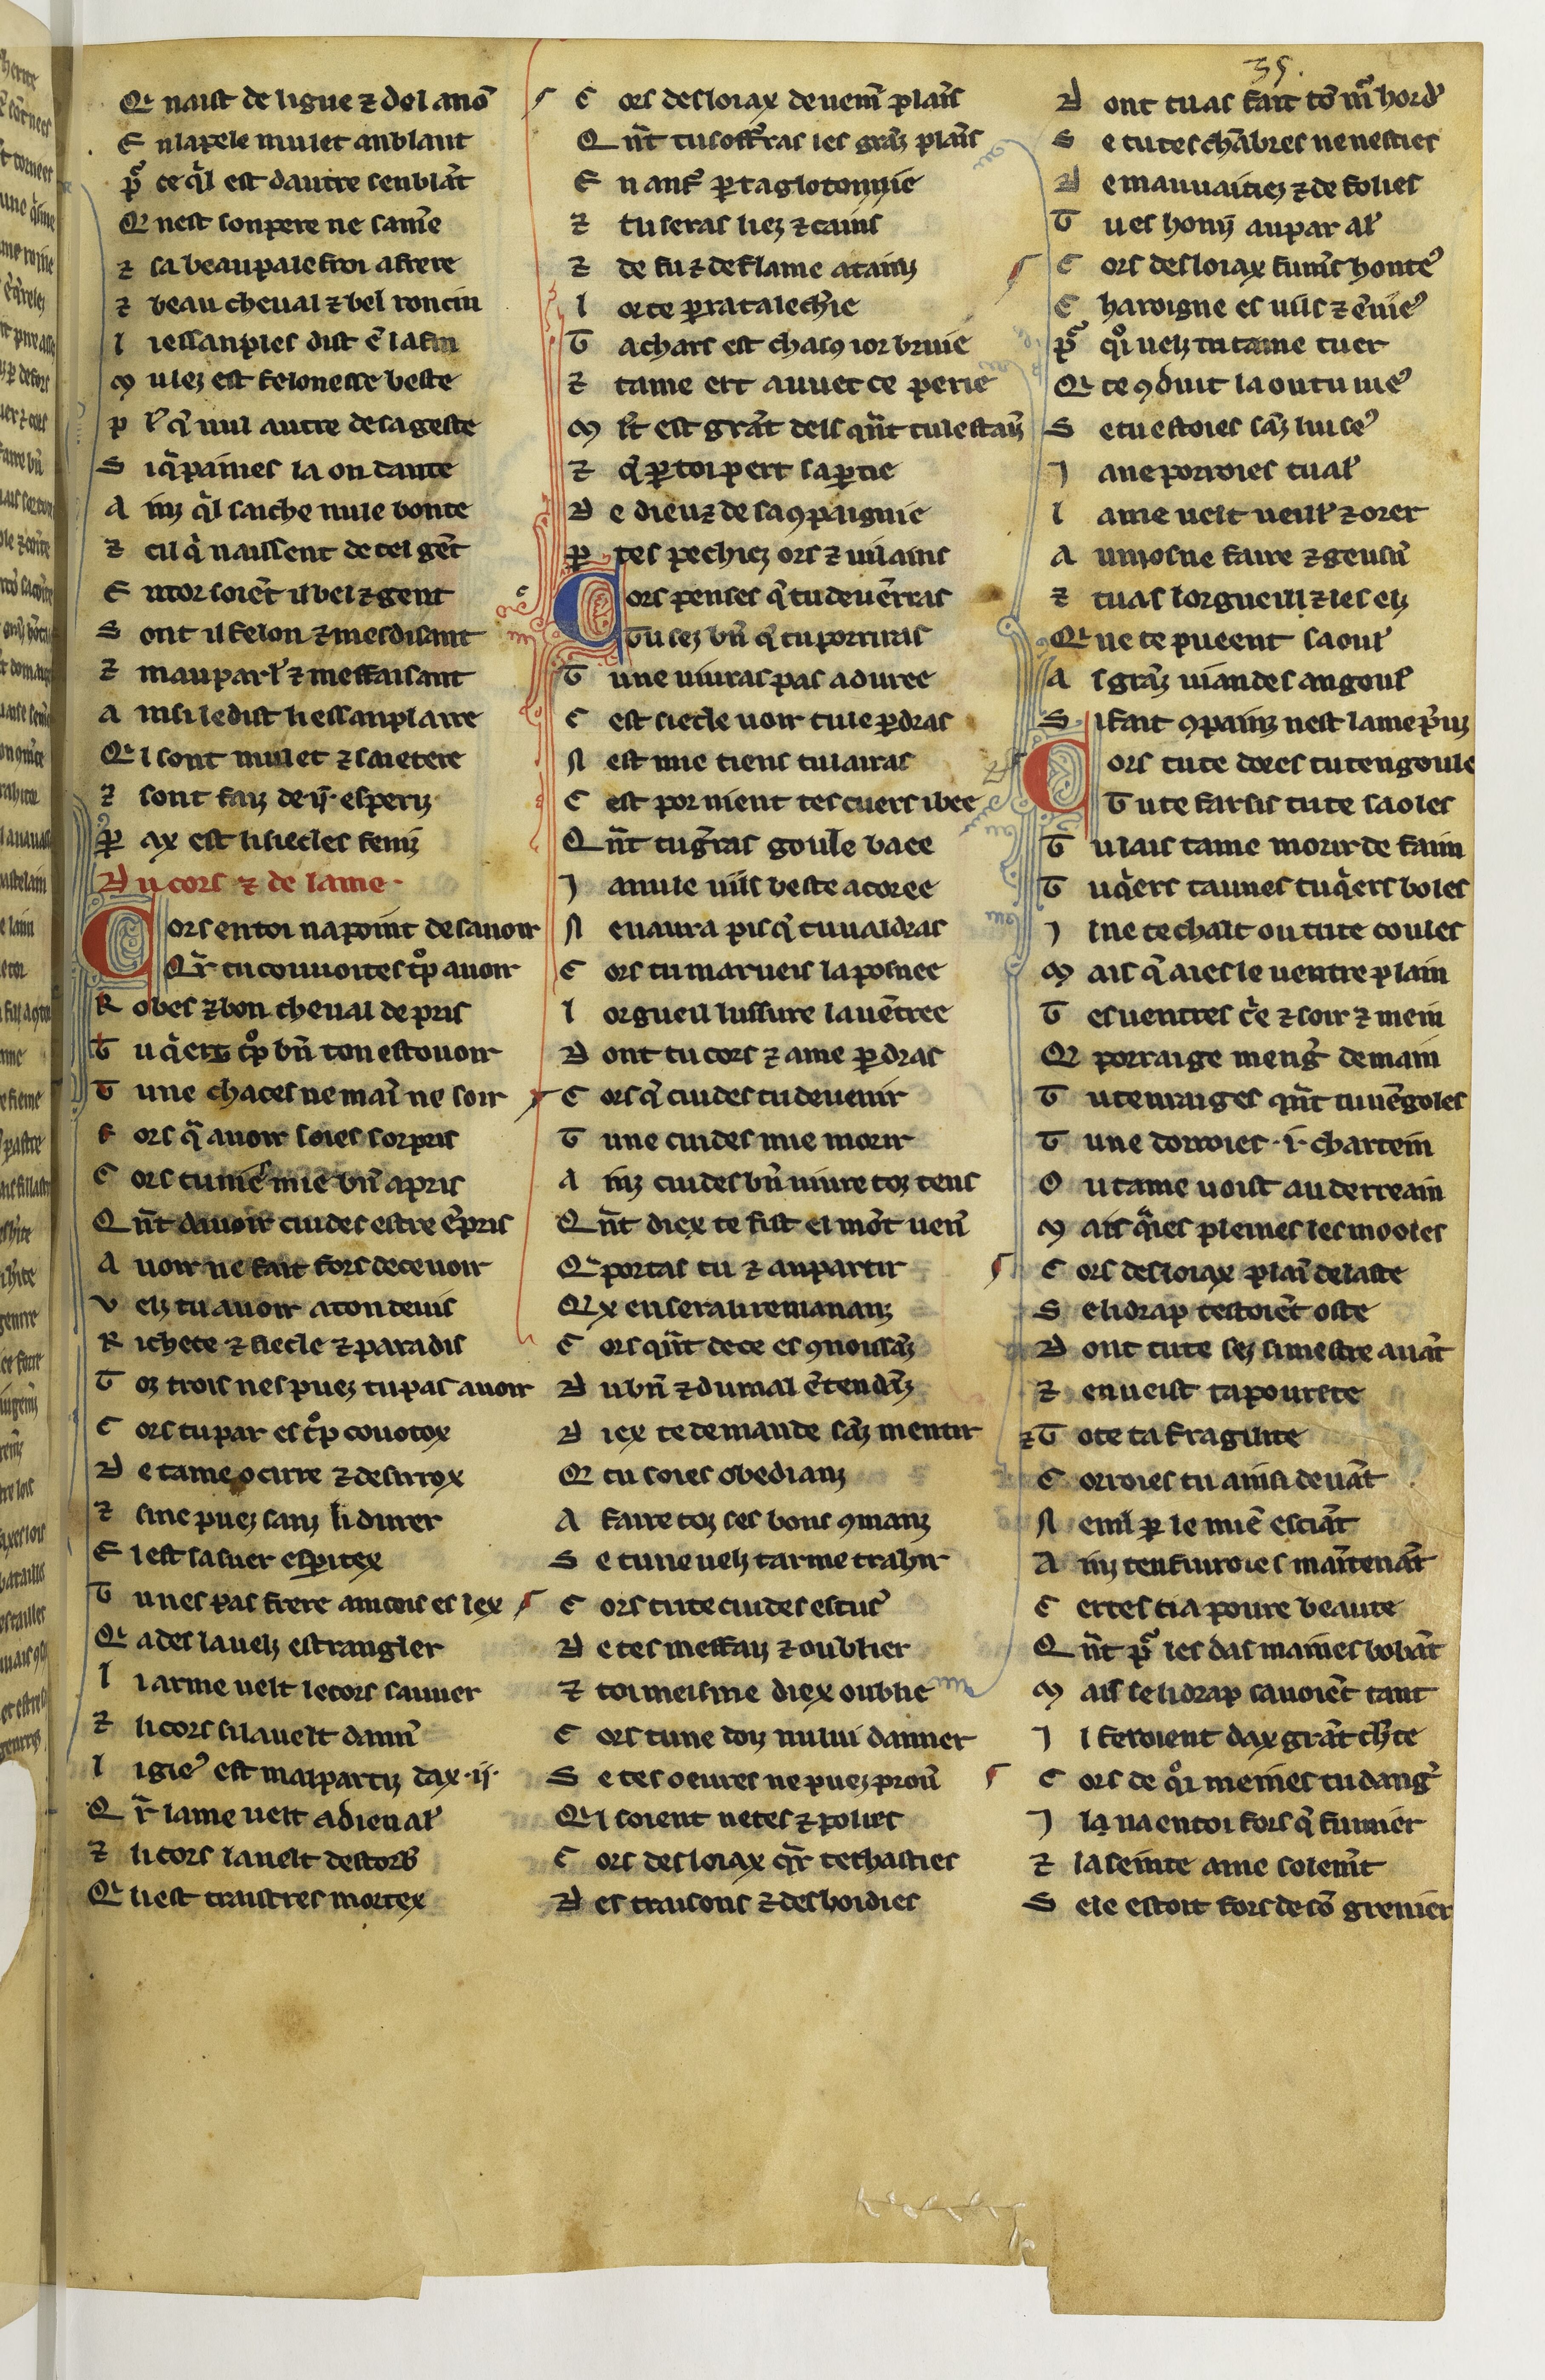 35.
Qi naist de ligne ⁊ del anõ
E n lapele mulet anblant
p̃ ce q̃l est dautre senblãt
Qi nest son pere ne sa mẽe
⁊ sa beau palefroi a frere
⁊ beau cheual ⁊ bel roncin
l i essanples dist ẽ la fin
M ulez est felonesse beste
p lꝰ q̃ nul autre de sa geste
S i q̃ painies la on dante
A inz q̃l saiche nule bonte
⁊ cil q̃ naissent de tel gẽt
E ntor soiẽt il bel ⁊ gent
S ont il felon ⁊ mesdisant
⁊ mauparlꝰ ⁊ meffaisant
A insi le dist li essanplaire
Qi sont mulet ⁊ saietere
⁊ sont faiz de .ij. esperiz
ꝑ ax est li siecles feniz
Du cors ⁊ de lame.
C ors en toi na point de sauoir
Qr̃ tu couuoites tͦp auoir
R obes ⁊ bon cheual de pris
T u q̃ers tͦp bñ ton estouoir
T u ne chaces ne maĩ ne soir
F ors q̃ auoir soies sorpris
C ors tu mieꝰ mie bñ apris
Qñt dauoir cuides estre ẽpris
A uoir ne fait fors deceuoir
V elz tu auoir a ton deuis
R ichete ⁊ siecle ⁊ paradis
T oz trois nes puez tu pas auoir
C ors tu par es tͦp couotox
D e tame ocirre ⁊ desirrox
⁊ si ne puez sanz li durer
E l est sa suer esꝑitex
T u nes pas frere ancois es lex
Qi ades la uelz estrangler
l i arme uelt le cors sauuer
⁊ li cors si la uelt dann̾
l i gieꝰ est mal partiz dax .ij.
Qr̃ lame uelt a dieu alꝰ
⁊ li cors la uelt destorb̾
Qi li est traistres mortex
C ors desloiax de uem̃ plaĩs
Qñt tu soff̾ras les grãz plaĩs
E n anf̾ ꝑ ta glotonnie
⁊ tu seras liez ⁊ cains
⁊ de fu ⁊ de flame atainz
l or te ꝑra ta lech̾ie
T a chars est chasꝯ ior bruie
⁊ tame ert auuec ce perie
M lt̃ est grãt dels qñt tu le stainz
⁊ q̃ ꝑ toi pert sa ꝑtie
D e dieu ⁊ de sa ꝯpaignie
ꝑ tes pechiez ors ⁊ uilains
C ors penses q̃ tu deuẽrras
T u sez bñ q̃ tu porriras
T u ne uiuras pas a duree
C est siecle uoir tu le ꝑdras
N est mie tiens tu lairas
C est por nient tes cuers i bee
Qñt tu g̃ras goule baee
I a nule uils beste acoree
N en aura pis q̃ tu uaidras
C ors tu mar ueis la posnee
l orgueil luxure la uẽtree
D ont tu cors ⁊ ame ꝑdras
C ors q̃ cuides tu deuenir
T u ne cuides mie morir
A inz cuides bñ uiure toz tens
Qñt diex te fist el mõt uenꝰ
Qi portas tu ⁊ au partir
Qi x en sera li remananz
C ors qñt de ce es ꝯnoissãz
D u bñ ⁊ du mal ẽtendãz
D iex te demande sãz mentir
Qi tu soies obedianz
A faire toz ses bons ꝯmanz
S e tu ne uelz tarme trahir
C ors tu te cuides escusꝰ
D e tes meffaiz ⁊ oublier
⁊ toi meisme diex oublie
C ors tu ne doiz nului danner
S e tes oeures ne puez prouꝰ
Qi soient netes ⁊ polies
C ors desloiax qr̃ te chasties
D es traisons ⁊ des boidies
D ont tu as fait tõ m̃ hord̾
S e tu tes chãbres ne nesties
D e mauuaitiez ⁊ de folies
T u es honiz au par alꝰ
C ors desloiax fum̃s honteꝰ
C haroigne es uils ⁊ ẽnieꝰ
p̃ qͦi uelz tu tame tuer
Qi te ꝯduit la ou tu uieꝰ
S e tu estoies sãz luiseꝰ
I a ne porroies tu alꝰ
l ame uelt ueillꝰ ⁊ orer
A umosne faire ⁊ geusnꝰ
⁊ tu as lorgueill ⁊ les elz
Qi ne te pueent saoulꝰ
A s grãz uiandes angoulꝰ
S i fait ꝯpainz nest lame p̃uz
C ors tu te dores tu tengoule
T u te farsis tu te saoles
T u lais tame morir de faim
T u q̃ers taunes tu q̃ers boles
I l ne te chalt ou tu te coules
M ais q̃ aies le uentre plain
T es uentres c̾e ⁊ soir ⁊ mein
Qi porraige meng̾ demain
T u tenraiges qñt tu uẽgoles
T u ne donroies .i. chartein
O u tame uoist au derreain
M ais q̃ies pleines les mooles
C ors desloiax plaĩ de laste
S e li drap testoiẽt oste
D ont tu te sez si uestre auãt
⁊ en ueist ta pourete
⁊ T ote ta fragilite
C orroies tu ainsi deuãt
N emil ꝑ le miẽ esciãt
A inz tenfuiroies maĩtenãt
C ertes ci a poure beaute
Qñt p̃ les dras maines bobãt
M ais se li drap sauoiẽt tant
I l feroient dax grãt ch̾te
C ors de qͦi meines tu dang̾
I l a na en toi fors q̃ fumier
⁊ la seinte ame solem̃t
S ele estoit fors de sõ grenier